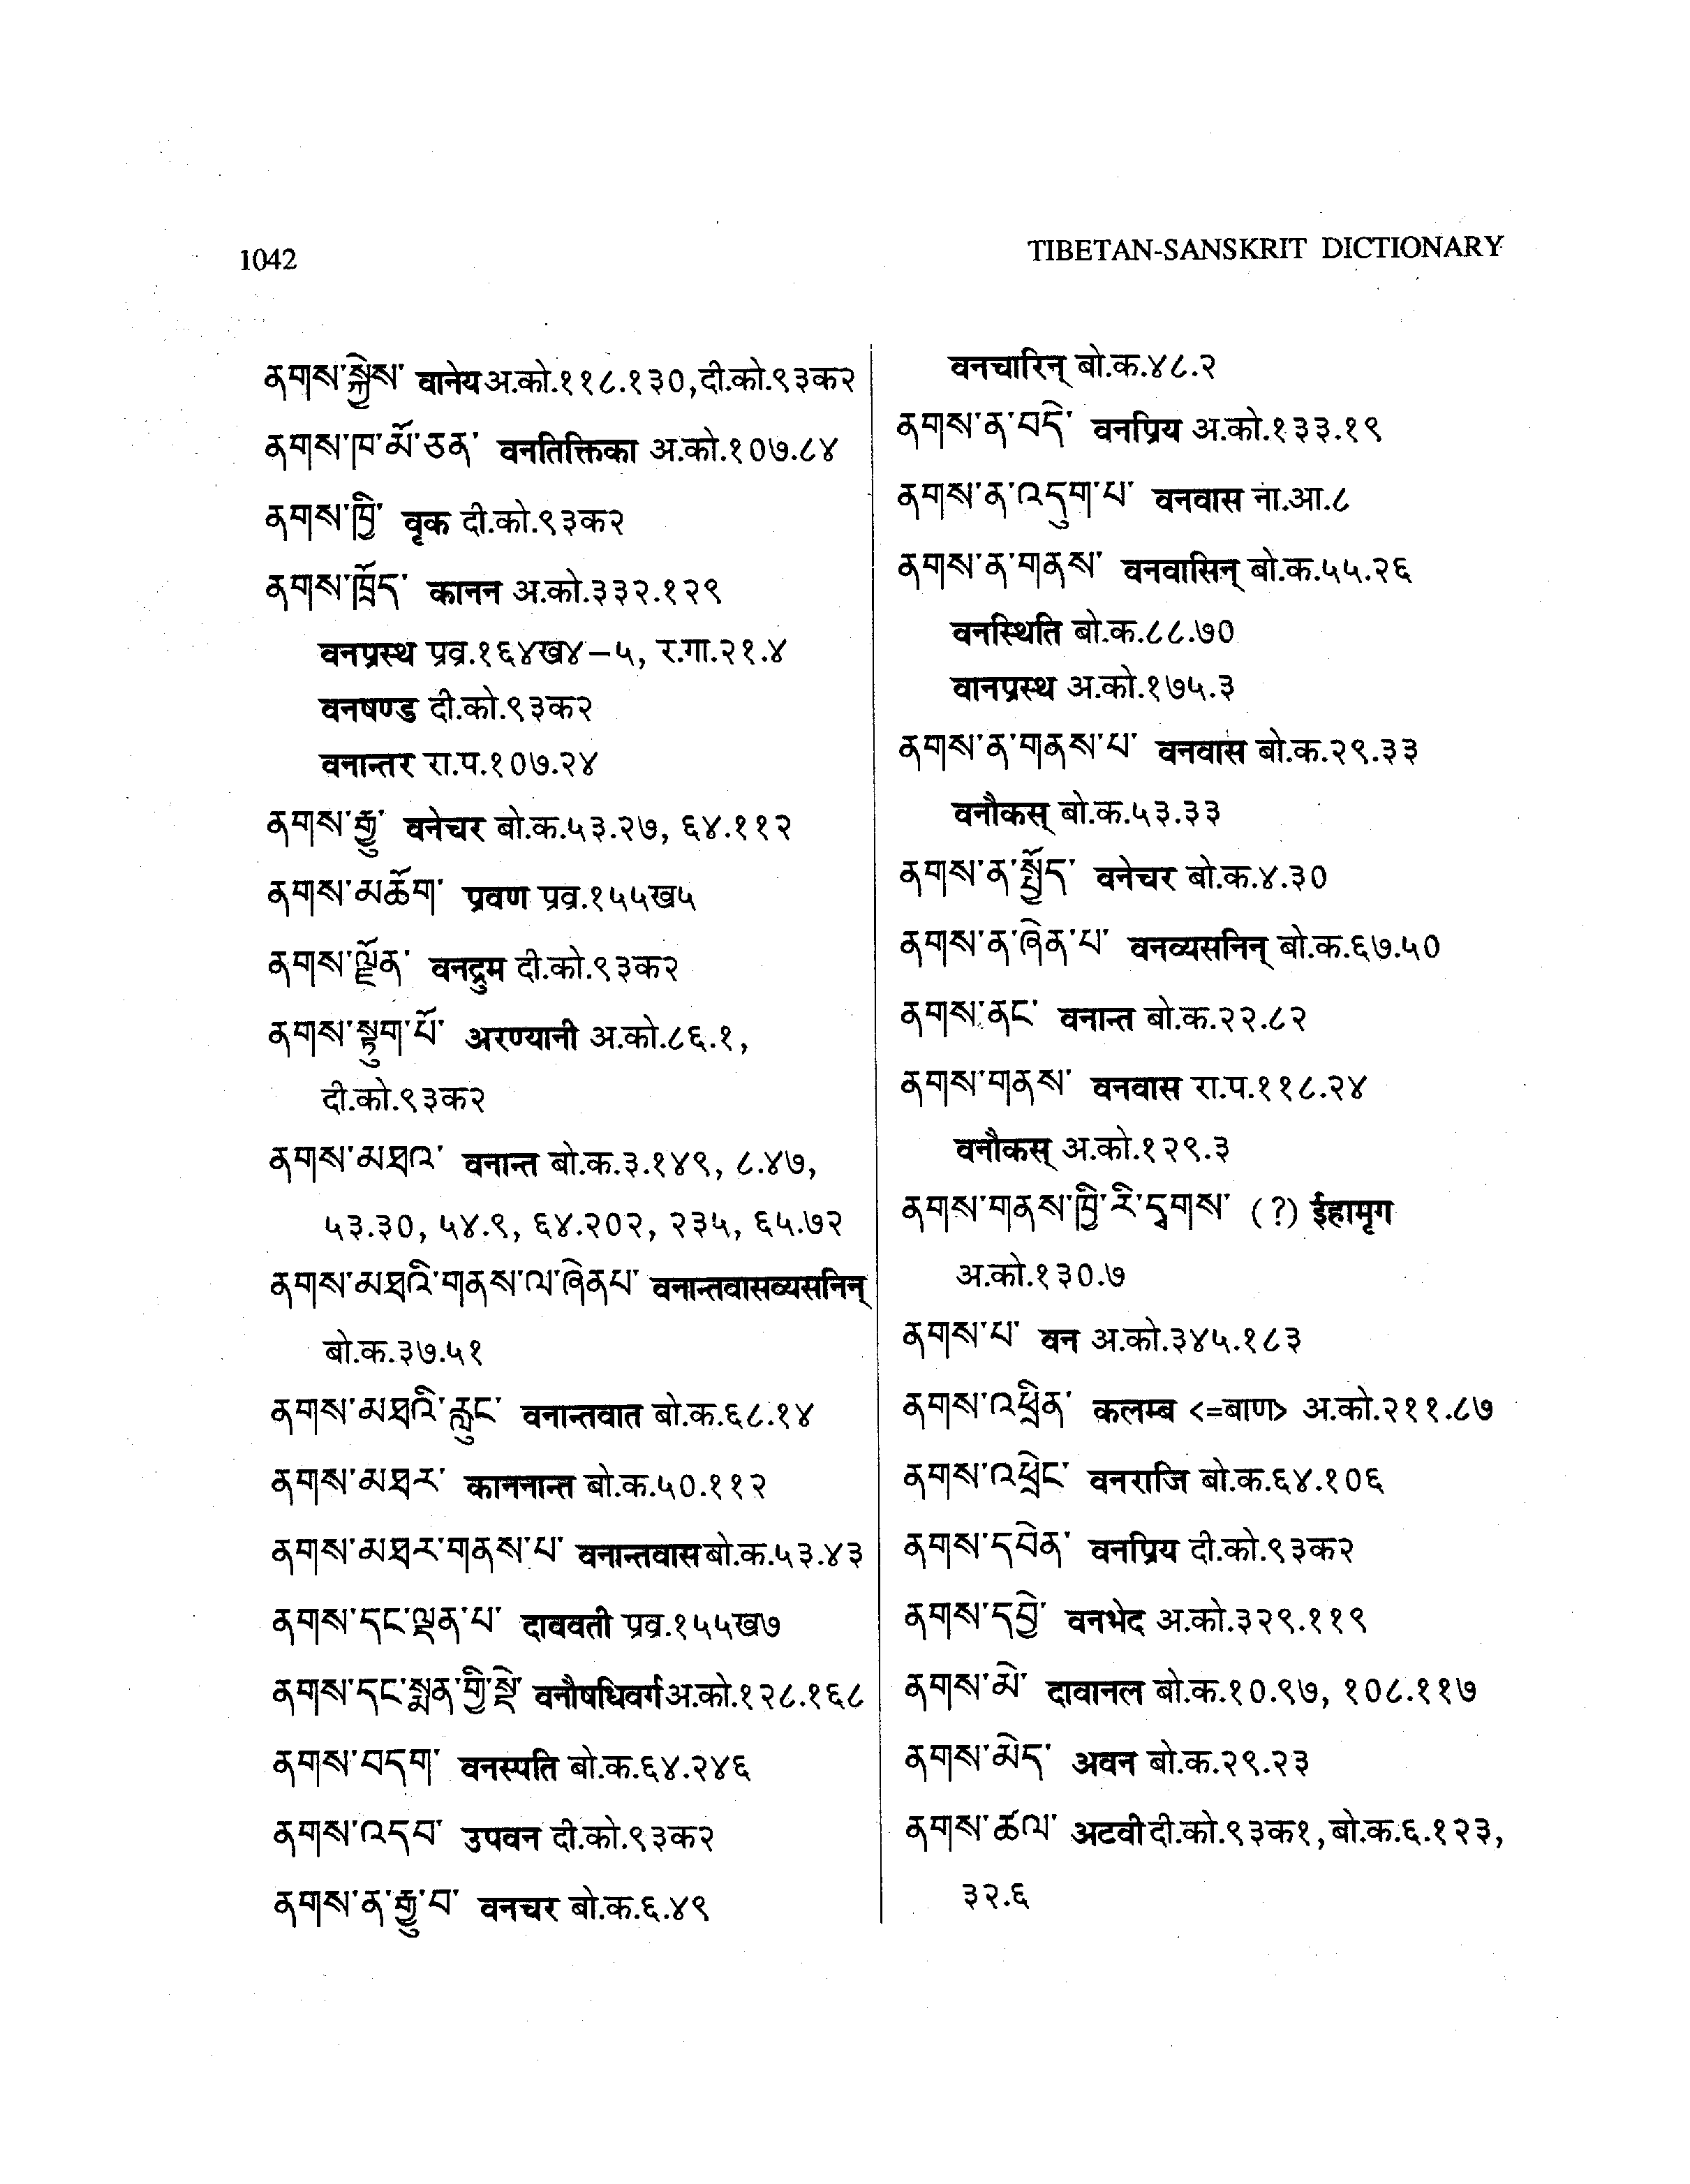 1042
TIBETAN-SANSKRIT DICTIONARY
ནགས་སྐྱེས་ वानेय अ.को.११८.१३०,दी.को.९३क२
ནགས་ཁ་མོ་ཅན་ वनतिक्तिका अ.को.१०७.८४
ནགས་ཁྱི་ वृक दी.को.९३क२
ནགས་ཁྲོད་ कानन अ.को.३३२.१२९
वनप्रस्थ प्रव्र.१६४ख४–५, र.गा.२१.४
वनषण्ड दी.को.९३क२
वनान्तर रा.प.१०७.२४
ནགས་རྒྱུ་ वनेचर बो.क.५३.२७, ६४.११२
ནགས་མཆོག་ प्रवण प्रव्र.१५५ख५
ནགས་ལྗོན་ वनद्रुम दी.को.९३क२
ནགས་སྟུག་པོ་ अरण्यानी अ.को.८६.१,
दी.को.९३क२
ནགས་མཐའ་ वनान्त बो.क.३.१४९, ८.४७,
५३.३०, ५४.९, ६४.२०२, २३५, ६५.७२
ནགས་མཐའི་གནས་ལ་ཞེནཔ་ वनान्तवासव्यसनिन्
बो.क.३७.५१
ནགས་མཐའི་རླུང་ वनान्तवात बो.क.६८.१४
ནགས་མཐར་ काननान्त बो.क.५०.११२
ནགས་མཐར་གནས་པ་ वनान्तवास बो.क.५३.४३
ནགས་དང་ལྡན་པ་ दाववती प्रव्र.१५५ख७
ནགས་དང་སྨན་གྱི་སྡེ་ वनौषधिवर्ग अ.को.१२८.१६८
ནགས་བདག་ वनस्पति बो.क.६४.२४६
ནགས་འདབ་ उपवन दी.को.९३क२
ནགས་ན་རྒྱུ་བ་ वनचर बो.क.६.४९
वनचारिन् बो.क.४८.२
ནགས་ན་བདེ་ वनप्रिय अ.को.१३३.१९
ནགས་ན་འདུག་པ་ वनवास ना.आ.८
ནགས་ན་གནས་ वनवासिन् बो.क.५५.२६
वनस्थिति बो.क.८८.७०
वानप्रस्थ अ.को.१७५.३
ནགས་ན་གནས་པ་ वनवास बो.क.२९.३३
वनौकस् बो.क.५३.३३
ནགས་ན་སྤྱོད་ वनेचर बो.क.४.३०
ནགས་ན་ཞེན་པ་ वनव्यसनिन् बो.क.६७.५०
ནགས་ནང་ वनान्त बो.क.२२.८२
ནགས་གནས་ वनवास रा.प.११८.२४
वनौकस् अ.को.१२९.३
ནགས་གནས་ཁྱི་རི་དྭགས་ (?) ईहामृग
अ.को.१३०.७
ནགས་པ་ वन अ.को.३४५.१८३
ནགས་འཕྲིན་ कलम्ब <=बाण> अ.को.२११.८७
ནགས་འཕྲེང་ वनराजि बो.क.६४.१०६
ནགས་དབེན་ वनप्रिय दी.को.९३क२
ནགས་དབྱེ་ वनभेद अ.को.३२९.११९
ནགས་མེ་ दावानल बो.क.१०.९७, १०८.११७
ནགས་མེད་ अवन बो.क.२९.२३
ནགས་ཚལ་ अटवी दी.को.९३क१,बो.क.६.१२३,
३२.६